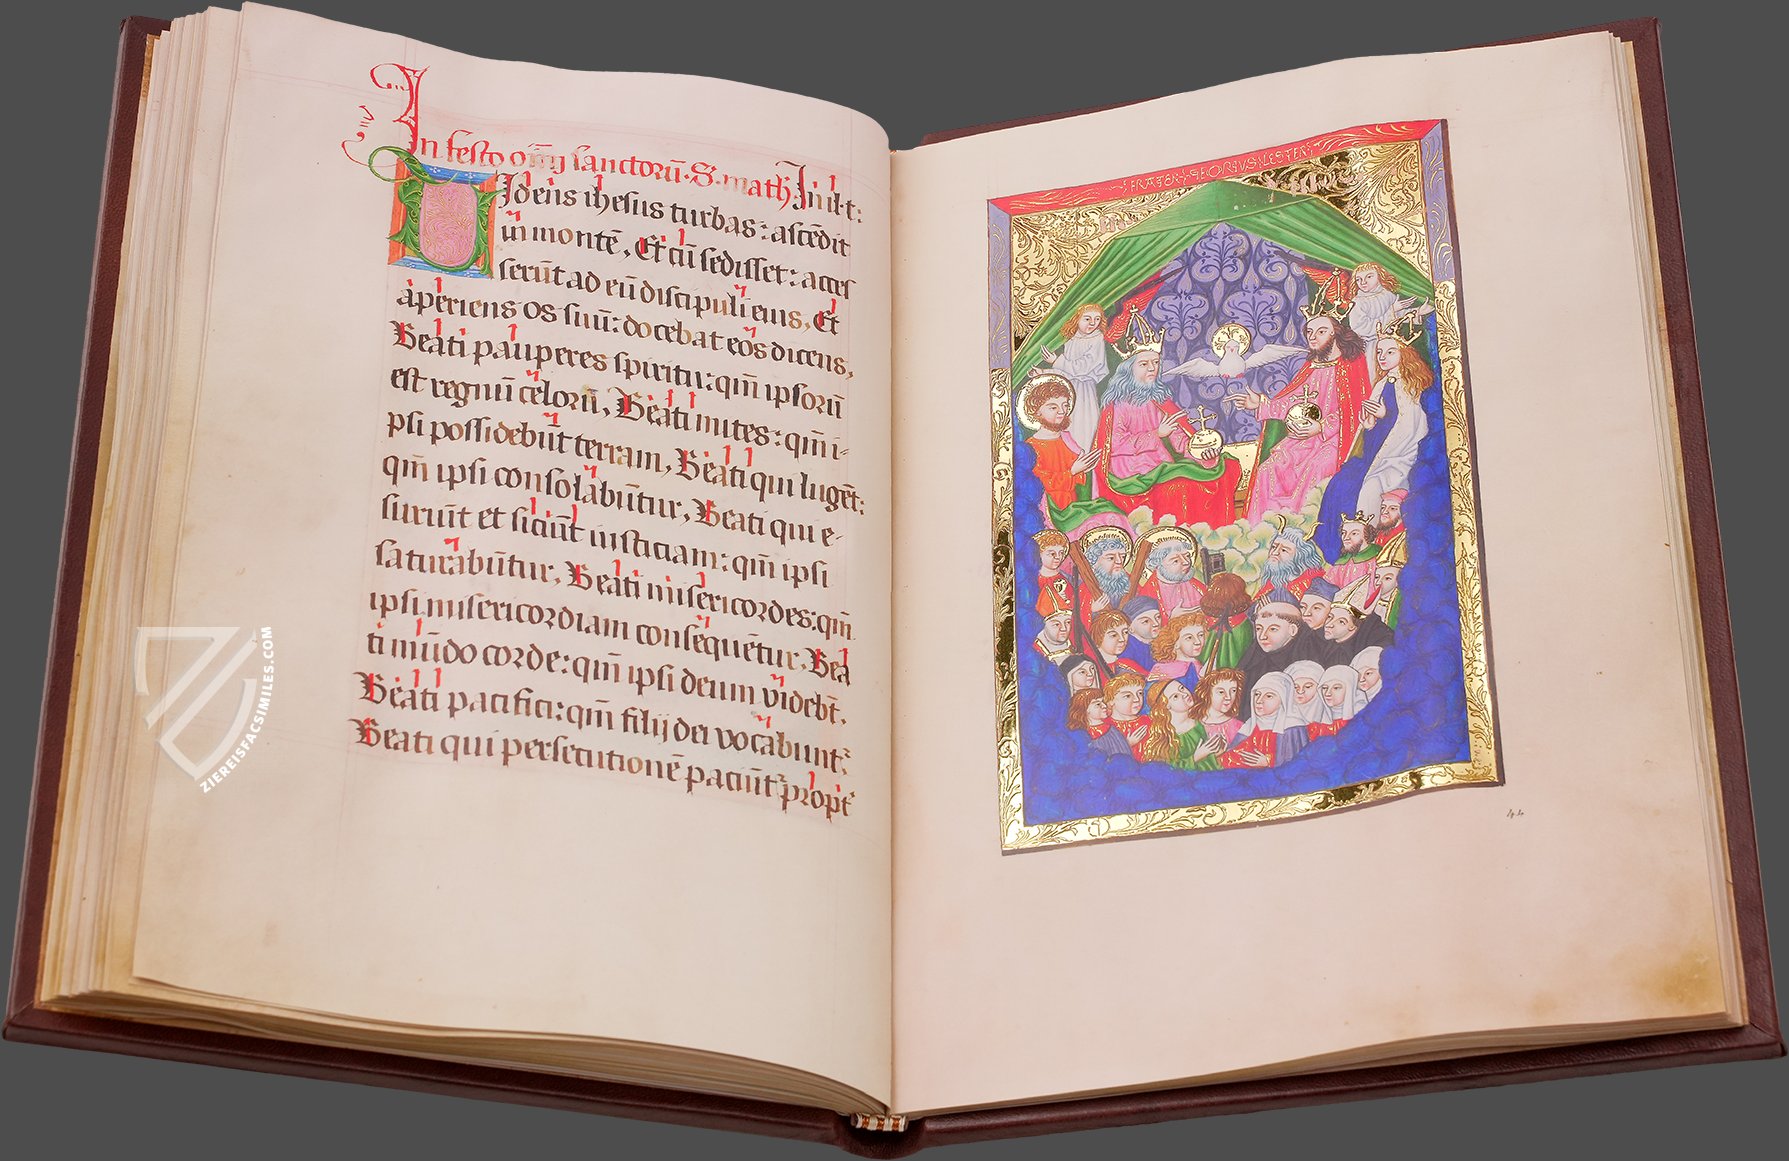 In festo om̅ij sanctorū. S. math. In il. t:
Videns ihesus turbas: ascēdit
in montē, Et cū sedisset: acces
serūt ad eū discipuli eius, Et
aperiens os suū: docebat eos dicens,
Beati pauperes spiritu: qm̅ ipsorū
est regnū celorū, Beati mites: qm̅ i-
psi possidebūt terram, Beati qui lugēt:
qm̅ ipsi consolabūtur, Beati qui e-
suriūt et siciūt iusticiam: qm̅ ipsi
saturabūtur, Beati misericordes: qm̅
ipsi misericordiam consequētur. Bea
ti mūdo corde: qm̅ ipsi deum videbt̅.
Beati pacifici: qm̅ filij dei vocabunt̅:
Beati qui persecutionē paciūt̅ propt̅
FRATER GEORIVS
ZIEREISFACSIMILES.COM